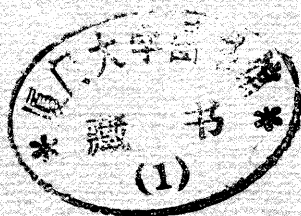 厦门大学图书馆
* 藏书 *
(1)